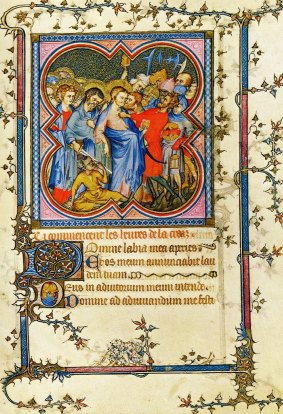 Ci commencent les heures de la croiz
Domine labia mea aperies
Et os meum annunciabit lau
dem tuam
Deus in adiutorium meum intende
Domine ad adiuvandum me festi